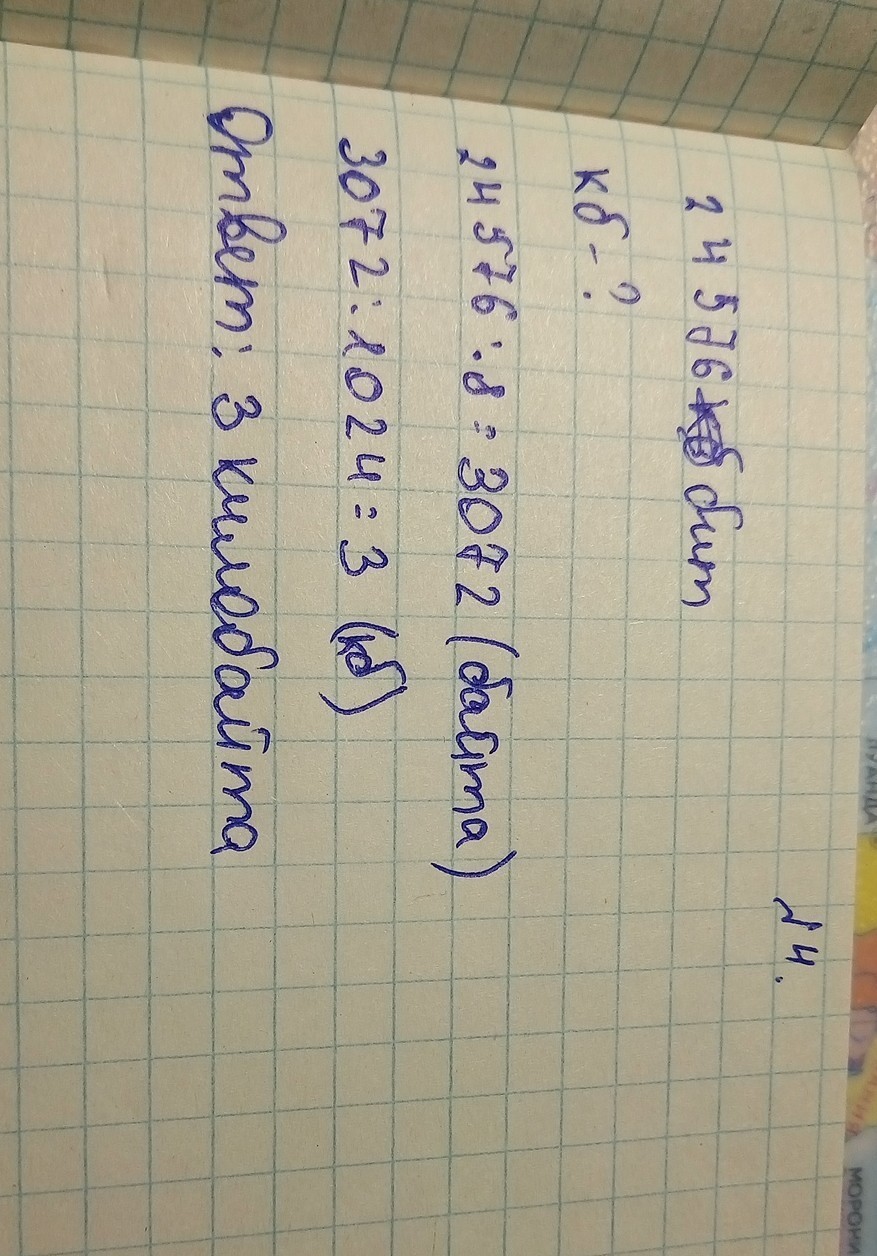 № 4.
24576 бит
кб - ?
24576 : 8 = 3072 (байта)
3072 : 1024 = 3 (кб)
Ответ: 3 килобайта
МОРОЖИ